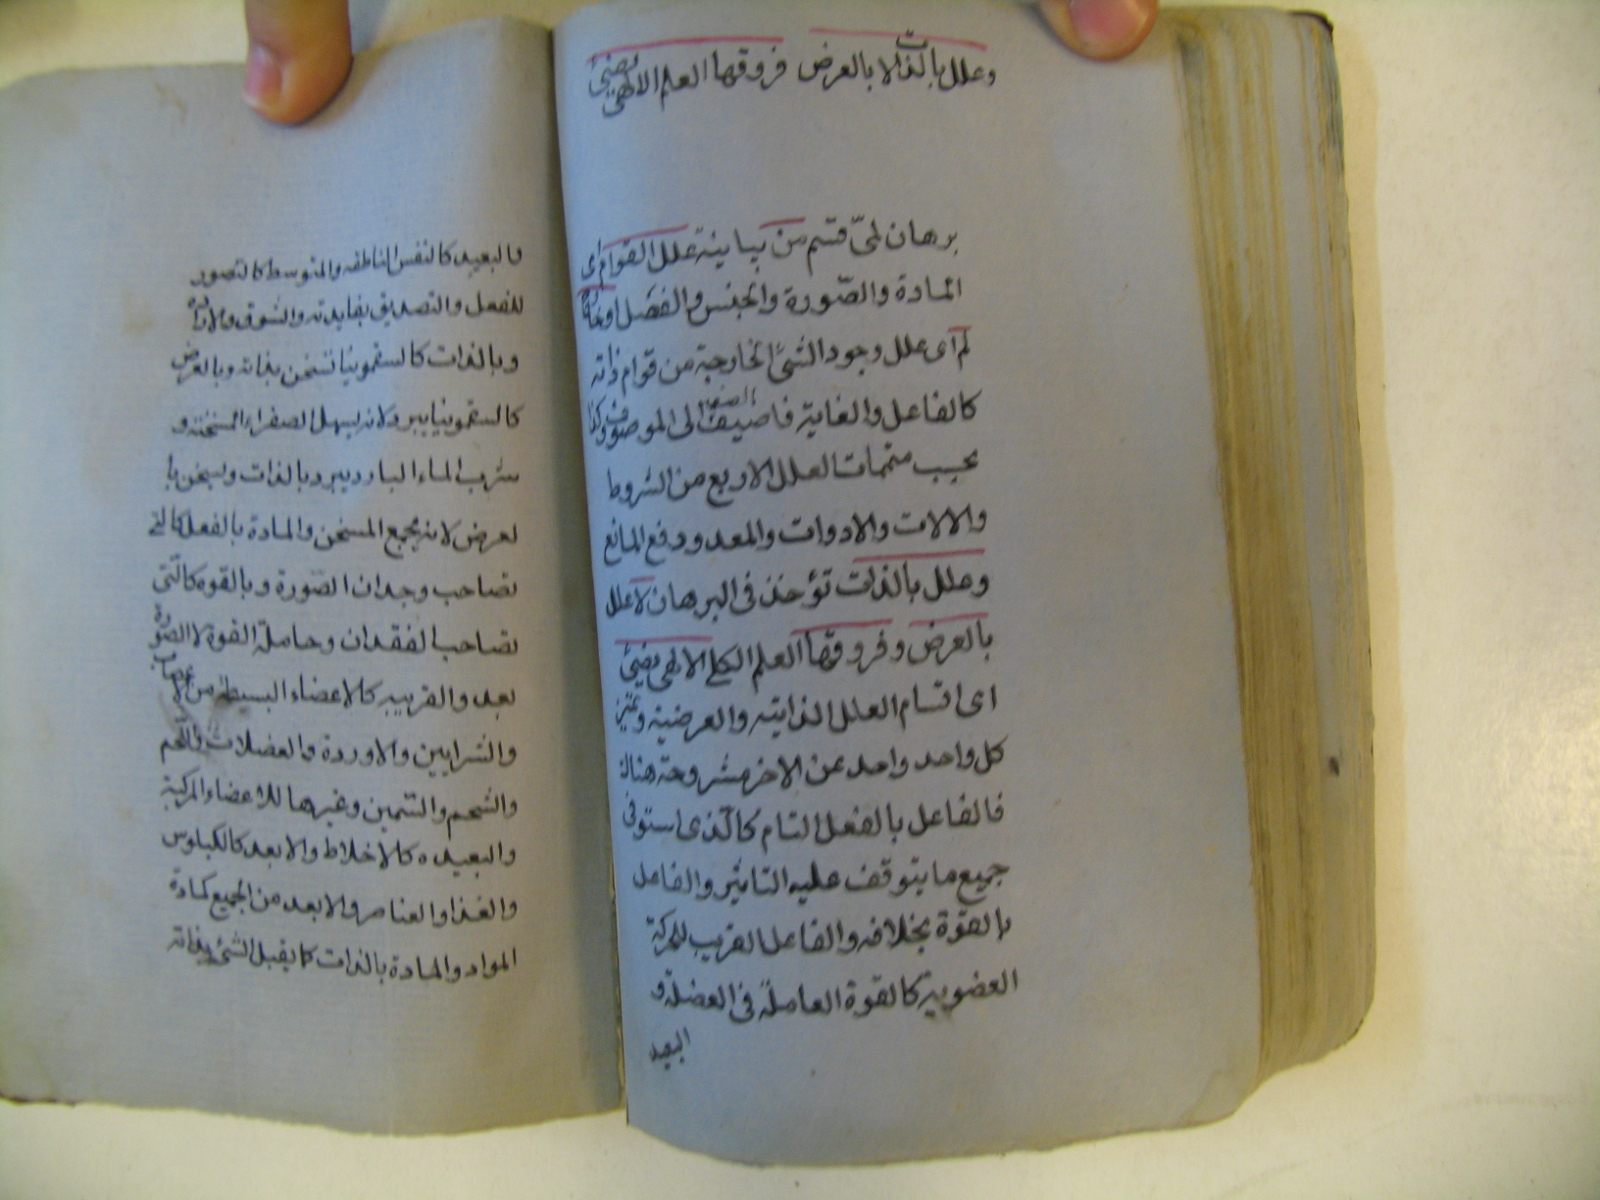 وعلل بالذات لا بالعرض فروقها العلم الالهى يضئ
برهان لمّى قسم من بيانية علل القوام اى
المادة والصّورة والجنس والفصل او
لم اى علل وجود الشئ الخارجة من قوام ذاته
كالفاعل والغاية فاضيف الصفة الى الموصوف وكذا
يجب متممات العلل الاربع من الشروط
والالات والادوات والمعد ورفع المانع
وعلل بالذات تؤخذ فى البرهان لا علل
بالعرض وفروقها العلم الكلى الالهى يضئ
اى اقسام العلل الذاتيه والعرضيه وتميز
كل واحد واحد عن الاخر مشروحة هناك
فالفاعل بالفعل التام كالّذى استوفى
جميع ما يتوقف عليه التاثير والفاعل
بالقوة بخلافه والفاعل القريب للحركة
العضوية كالقوة العاملة فى العضلة و
البعيد
والبعيد كالنفس الناطقه والمتوسط كالتصور
للفعل والتصديق بفايدته والشوق والارادة
وبالذات كالسقمونيا تسخن بذاته وبالعرض
كالسقمونيا يبرد لانه يسهل الصفراء المسخنة و
شرب الماء البارد يبرد بالذات ويسخن با
لعرض لانه يجمع المسخن والمادة بالفعل كالتى
تصاحب وجدان الصّورة وبالقوه كالّتى
تصاحب الفقدان وحاملة القوة لا الصّورة
بعد والقريبه كالاعضاء البسيطة من الاعصاب
والشرايين والاوردة والعضلات واللّحم
والشحم والسّمين وغيرها للاعضاء المركبة
والبعيده كالاخلاط والابعد كالكيلوس
والغذا والعناصر والابعد من الجميع كمادة
المواد والمادة بالذات كما يقبل الشئ بذاته